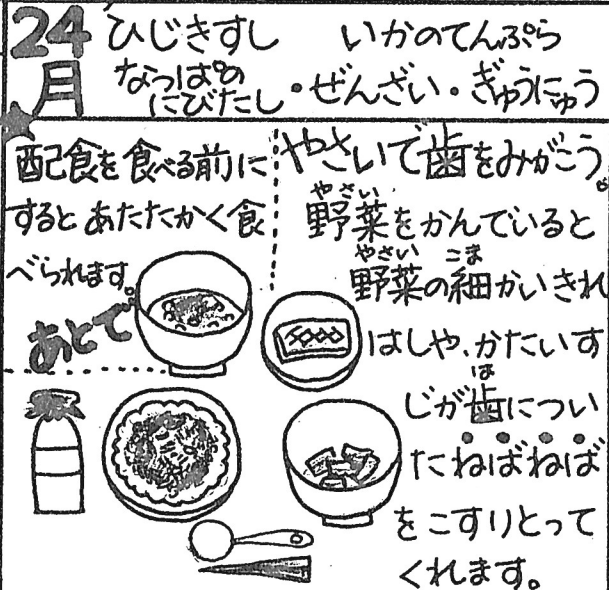 24
月
ひじきすし　いかのてんぷら
なっぱの
にびたし・ぜんざい・ぎゅうにゅう
配食を食べる前に
するとあたたかく食
べられます。
あとで
やさいで歯をみがこう。
やさい
野菜をかんでいると
やさい　こま
野菜の細かいきれ
はしや、かたいす
は
じが歯につい
たねばねば
をこすりとって
くれます。